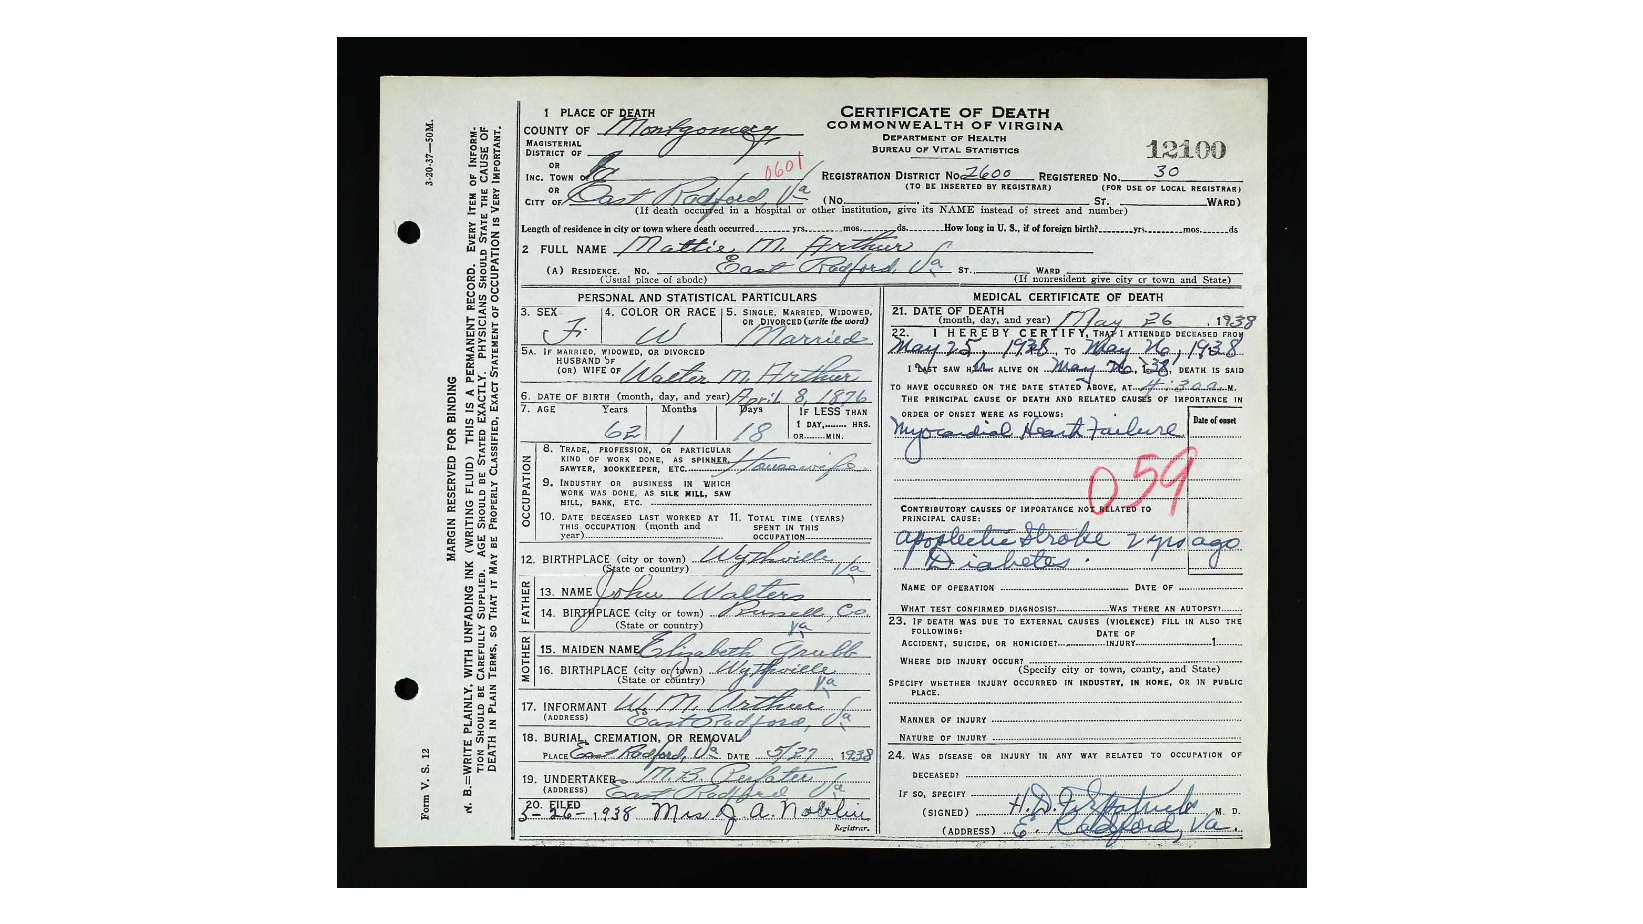 3-20-37—50M.
MARGIN RESERVED FOR BINDING
N. B.—WRITE PLAINLY, WITH UNFADING INK (WRITING FLUID) THIS IS A PERMANENT RECORD. EVERY ITEM OF INFORM-
TION SHOULD BE CAREFULLY SUPPLIED. AGE SHOULD BE STATED EXACTLY. PHYSICIANS SHOULD STATE THE CAUSE OF
DEATH IN PLAIN TERMS, SO THAT IT MAY BE PROPERLY CLASSIFIED, EXACT STATEMENT OF OCCUPATION IS VERY IMPORTANT.
Form V. S. 12
CERTIFICATE OF DEATH
COMMONWEALTH OF VIRGINA
DEPARTMENT OF HEALTH
BUREAU OF VITAL STATISTICS
12100
1 PLACE OF DEATH
COUNTY OF Montgomery
MAGISTERIAL
DISTRICT OF
OR
INC. TOWN OF
0601
OR
CITY OF East Radford, Va
REGISTRATION DISTRICT No. 2600 REGISTERED No. 30
(TO BE INSERTED BY REGISTRAR) (FOR USE OF LOCAL REGISTRAR)
(No. ST. WARD)
(If death occurred in a hospital or other institution, give its NAME instead of street and number)
Length of residence in city or town where death occurred yrs. mos. ds. How long in U. S., if of foreign birth? yrs. mos. ds
2 FULL NAME Mattie M. Arthur
(A) RESIDENCE. No. East Radford, Va ST. WARD
(Usual place of abode) (If nonresident give city or town and State)
PERSONAL AND STATISTICAL PARTICULARS
3. SEX 4. COLOR OR RACE 5. SINGLE, MARRIED, WIDOWED,
OR DIVORCED (write the word)
F. W Married
5A. IF MARRIED, WIDOWED, OR DIVORCED
HUSBAND OF
(OR) WIFE OF Walter M. Arthur
6. DATE OF BIRTH (month, day, and year) April 8, 1876
7. AGE Years Months Days IF LESS THAN
1 DAY, HRS.
62 1 18 OR MIN.
OCCUPATION
8. TRADE, PROFESSION, OR PARTICULAR
KIND OF WORK DONE, AS SPINNER,
SAWYER, BOOKKEEPER, ETC. Housewife
9. INDUSTRY OR BUSINESS IN WHICH
WORK WAS DONE, AS SILK MILL, SAW
MILL, BANK, ETC.
10. DATE DECEASED LAST WORKED AT 11. TOTAL TIME (YEARS)
THIS OCCUPATION (month and SPENT IN THIS
year) OCCUPATION
12. BIRTHPLACE (city or town) Wytheville
(State or country) Va
FATHER
13. NAME John Walters
14. BIRTHPLACE (city or town) Russell, Co.
(State or country) Va
MOTHER
15. MAIDEN NAME Elizabeth Grubb
16. BIRTHPLACE (city or town) Wytheville
(State or country) Va
17. INFORMANT W. M. Arthur
(ADDRESS) East Radford, Va
18. BURIAL, CREMATION, OR REMOVAL
PLACE East Radford, Va. DATE 5/27, 1938
19. UNDERTAKER M.B.
(ADDRESS) East Radford Va
20. FILED
5-26-1938 Mrs J. A. Noblin
Registrar.
MEDICAL CERTIFICATE OF DEATH
21. DATE OF DEATH
(month, day, and year) May 26, 1938
22. I HEREBY CERTIFY, THAT I ATTENDED DECEASED FROM
May 25, 1938, TO May 26, 1938
I LAST SAW H ALIVE ON May 26, 38, DEATH IS SAID
TO HAVE OCCURRED ON THE DATE STATED ABOVE, AT 4:30 a. M.
THE PRINCIPAL CAUSE OF DEATH AND RELATED CAUSES OF IMPORTANCE IN
ORDER OF ONSET WERE AS FOLLOWS: Date of onset
Myocardial Heart Failure
059
CONTRIBUTORY CAUSES OF IMPORTANCE NOT RELATED TO
PRINCIPAL CAUSE:
Apoplectic Stroke 2 yrs ago
Diabetes.
NAME OF OPERATION DATE OF
WHAT TEST CONFIRMED DIAGNOSIS? WAS THERE AN AUTOPSY?
23. IF DEATH WAS DUE TO EXTERNAL CAUSES (VIOLENCE) FILL IN ALSO THE
FOLLOWING: DATE OF
ACCIDENT, SUICIDE, OR HOMICIDE? INJURY 1
WHERE DID INJURY OCCUR?
(Specify city or town, county, and State)
SPECIFY WHETHER INJURY OCCURRED IN INDUSTRY, IN HOME, OR IN PUBLIC
PLACE.
MANNER OF INJURY
NATURE OF INJURY
24. WAS DISEASE OR INJURY IN ANY WAY RELATED TO OCCUPATION OF
DECEASED?
IF SO, SPECIFY
(SIGNED) H. D. Fitzpatrick M. D.
(ADDRESS) E. Radford, Va.